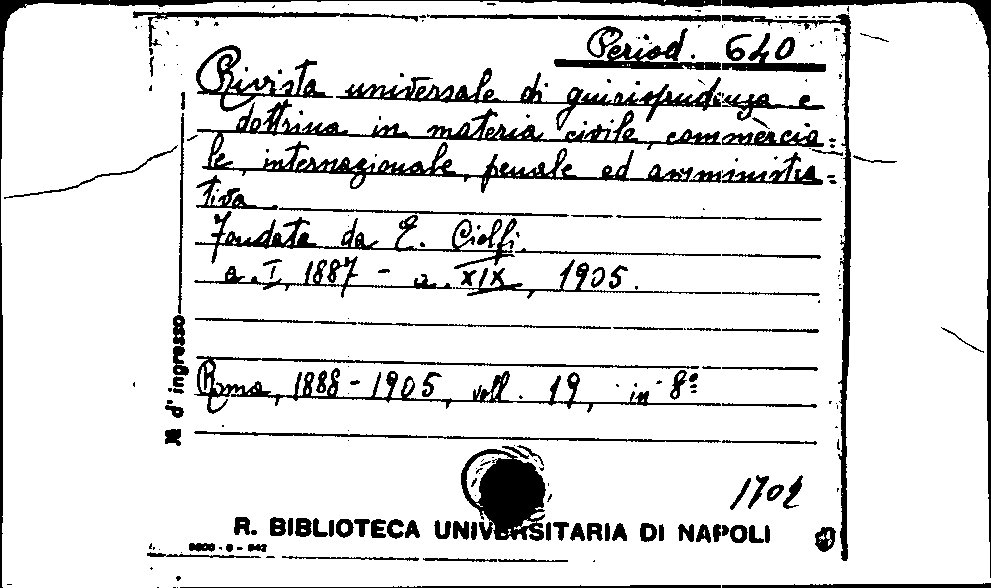 Period. 640
Rivista universale di guirisprudenza e
dottrina in materia civile, commercia=
le, internazionale, penale ed amministra=
tiva.
Fondata da E. Ciolfi.
a. I, 1887 - a. XIX, 1905.
Roma, 1888-1905, voll. 19, in 8º
1702
R. BIBLIOTECA UNIVERSITARIA DI NAPOLI
№ d'ingresso